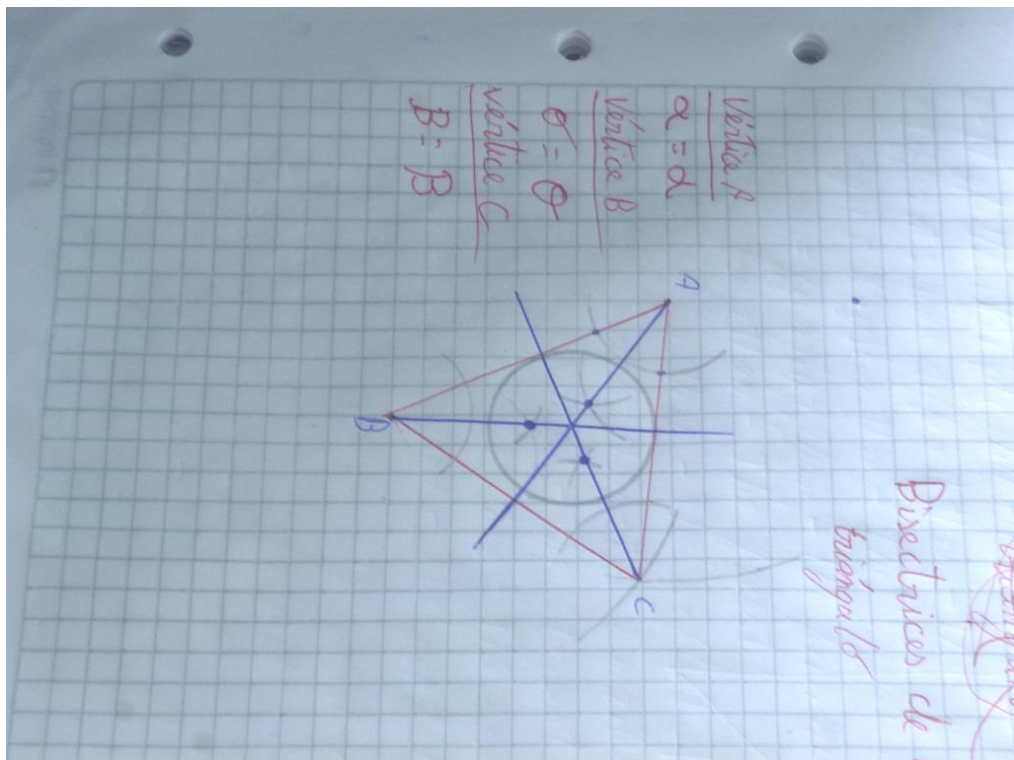 Bisectrices de
triángulo
Vértice A
α = α
Vértice B
σ = σ
Vértice C
B = B
A
B
C